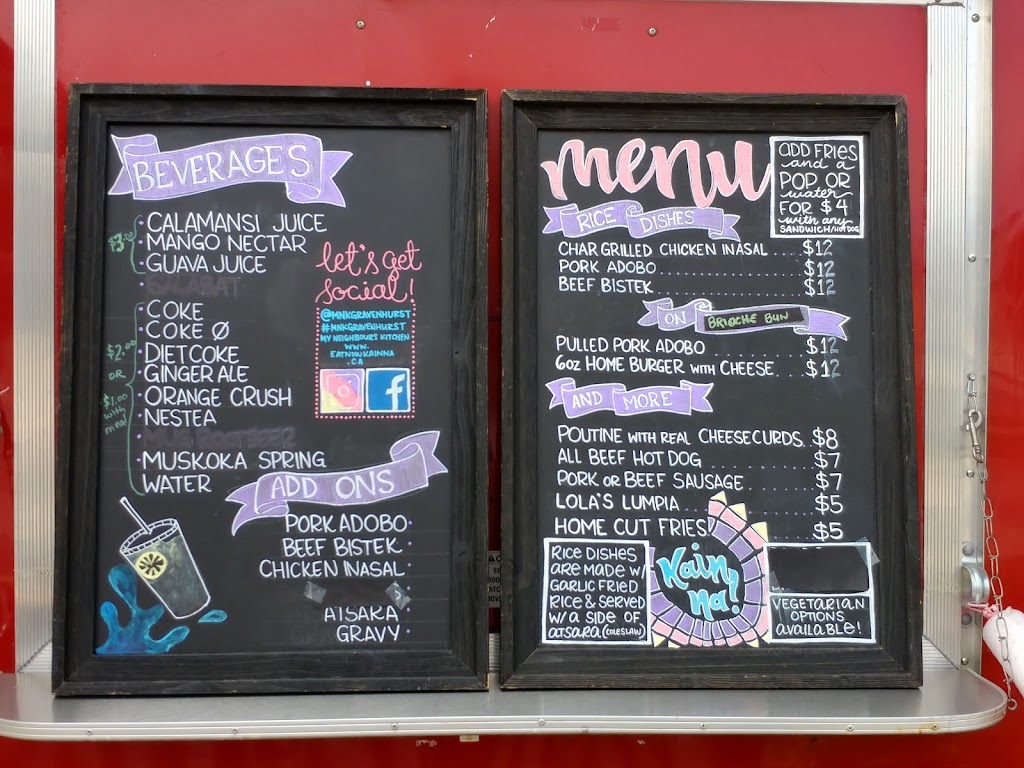 BEVERAGES
CALAMANSI JUICE
MANGO NECTAR
GUAVA JUICE
SALABAT
COKE
COKE Ø
$2.00
DIET COKE
OR
GINGER ALE
$1.00
with
meal
ORANGE CRUSH
NESTEA
MUSKOKA SPRING
WATER
let's get
social!
@MNKGRAVENHURST
#MNKGRAVENHURST
MY NEIGHBOUR'S KITCHEN
WWW.
EATNOWKAINNA
.CA
f
ADD ONS
PORK ADOBO
BEEF BISTEK
CHICKEN INASAL
ATSARA
GRAVY
menu
ADD FRIES
and a
POP OR
water
FOR $4
with any
SANDWICH/HOTDOG
RICE DISHES
CHAR GRILLED CHICKEN INASAL .... $12
PORK ADOBO .... $12
BEEF BISTEK .... $12
ON BRIOCHE BUN
PULLED PORK ADOBO .... $12
6oz HOME BURGER WITH CHEESE ... $12
AND MORE
POUTINE WITH REAL CHEESECURDS.. $8
ALL BEEF HOT DOG .... $7
PORK OR BEEF SAUSAGE .... $7
LOLA'S LUMPIA .... $5
HOME CUT FRIES! .... $5
RICE DISHES
ARE MADE W/
GARLIC FRIED
RICE & SERVED
W/ A SIDE OF
ATSARA (COLESLAW)
Kain,
Na!
VEGETARIAN
OPTIONS
AVAILABLE!